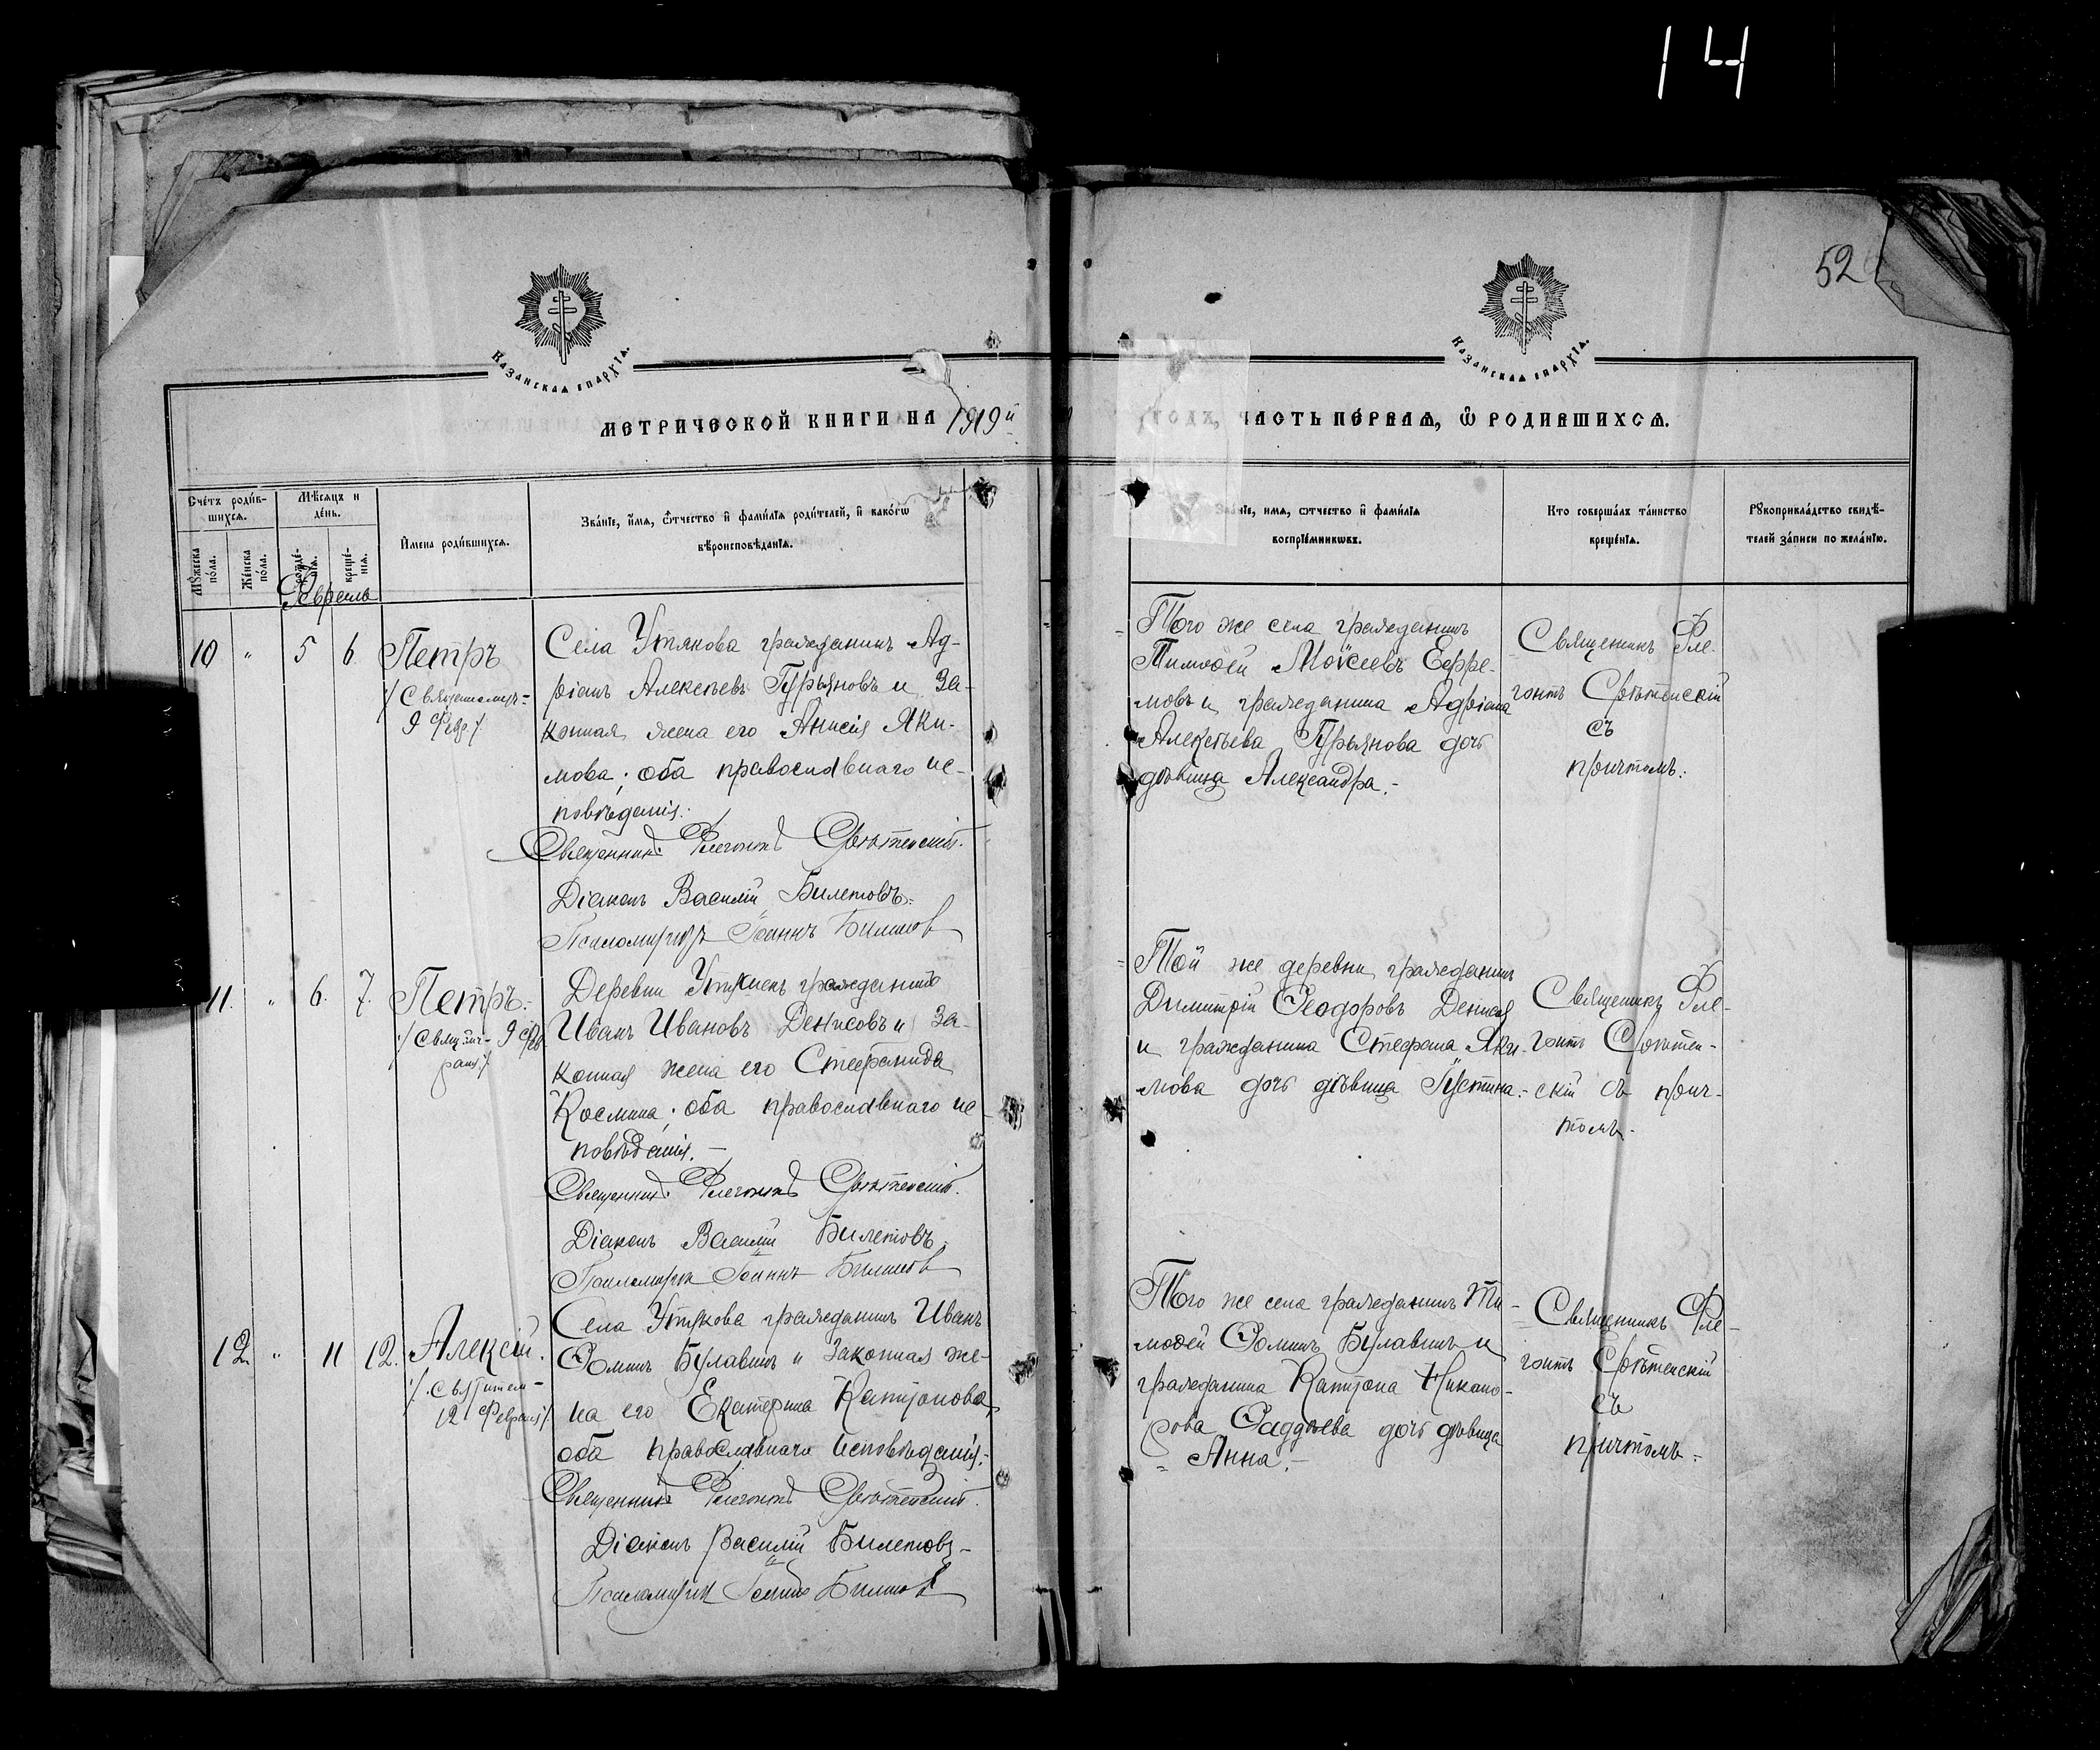 14
52
Казанская епархїѧ.
Казанская епархїѧ.
МЕТРИЧЕСКОЙ КНИГИ НА 1919й
ГОДЪ, ЧАСТЬ ПЕ́РВАѦ, Ѿ РОДИВШИХСѦ.
Сче́тъ роди́в-
шихсѧ.
Мѣ́сѧцъ и
де́нь.
Мꙋ́жеска
по́ла.
Же́нска
по́ла.
креще́-
нїѧ.
И҆мена роди́вшихсѧ.
Зва́нїе, и҆́мѧ, ѻ҆́тчество и҆ фами́лїѧ роди́телей, и҆ како́гѡ
вѣроисповѣ́данїѧ.
Зва́нїе, имѧ, ѻтчество и҆ фами́лїѧ
воспрїе́мникѡвъ.
Кто соверша́лъ та́инство
креще́нїѧ.
Рꙋкоприкла́дство свидѣ́-
телей за́писи по жела́нїю.
Февраль
10 " 5 6
Петръ
9 Февр.
Села Утякова гражданинъ Ад-
ріанъ Алексѣевъ Гурьяновъ и за-
конная жена его Анисія Яки-
мова; оба православнаго ис-
повѣданія.
Священникъ Флегонтъ Срѣтенскій.
Діаконъ Василій Билетовъ.
Псаломщикъ Іоаннъ
Того же села гражданинъ
Тимоѳей Моѵсеевъ Ефре-
мовъ и гражданина Адріана
Алексѣева Гурьянова дочь
дѣвица Александра.-
Священникъ Фле-
гонтъ Срѣтенскій
съ
причтомъ.
11. " 6. 7.
Петръ.
9 Фев
раля
Деревни гражданинъ
Иванъ Ивановъ Денисовъ и за-
конная жена его Стефанида
Космина; оба православнаго ис-
повѣданія.-
Священникъ Флегонтъ Срѣтенскій.
Діаконъ Василій Билетовъ.
Псаломщикъ Іоаннъ
Той же деревни гражданинъ
Димитрій Ѳеодоровъ
и гражданина Стефана Яки-
мова дочь дѣвица Іустина.-
Священникъ Фле-
гонтъ Срѣтен-
скій съ прич-
томъ.
12. " 11 12.
Алексій.
Святител-
12 Февраля
Села Утякова гражданинъ Иванъ
Ѳоминъ Булавинъ и законная же-
на его Екатерина Капитонова,
оба православнаго исповѣданія.-
Священникъ Флегонтъ Срѣтенскій.
Діаконъ Василій Билетовъ-
Псаломщикъ Іоаннъ
Того же села гражданинъ Ти-
моѳей Ѳоминъ Булавинъ и
гражданина Капитона Никано-
рова Ѳаддѣева дочь дѣвица
Анна.-
Священникъ Фле-
гонтъ Срѣтенскій
съ
причтомъ.